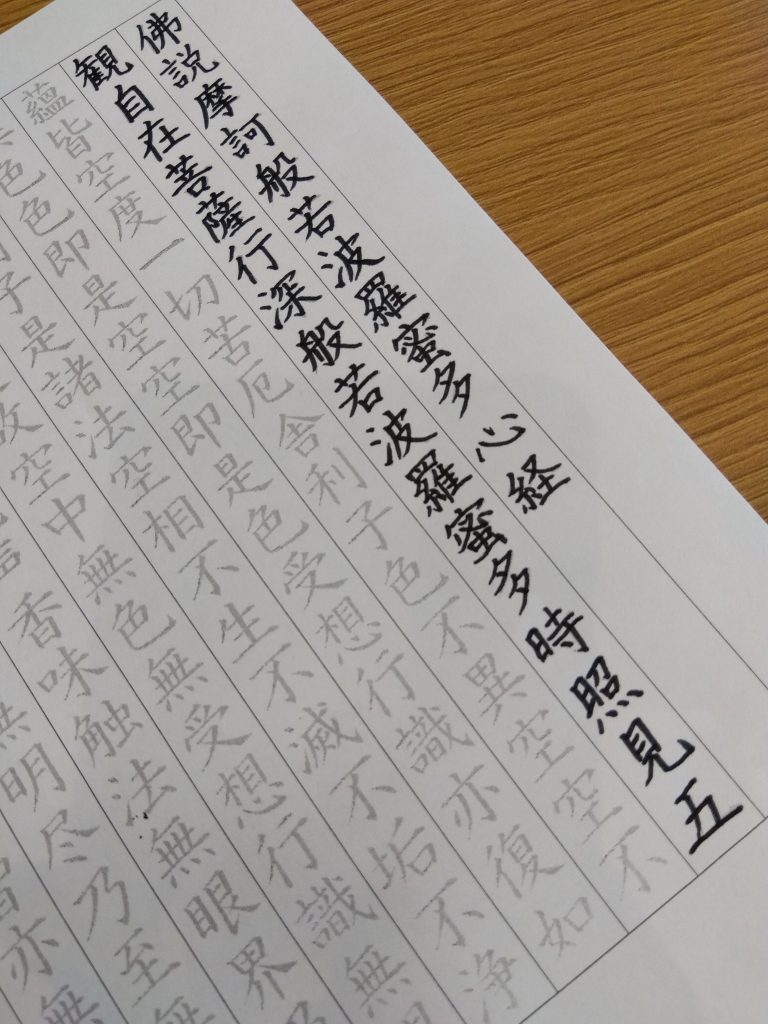 佛説摩訶般若波羅蜜多心経
観自在菩薩行深般若波羅蜜多時照見五
蘊皆空度一切苦厄舎利子色不異空空不
異色色即是空空即是色受想行識亦復如
子是諸法空相不生不滅不垢不浄
故空中無色無受想行識無
香味触法無眼界乃
無明尽乃至無
亦無